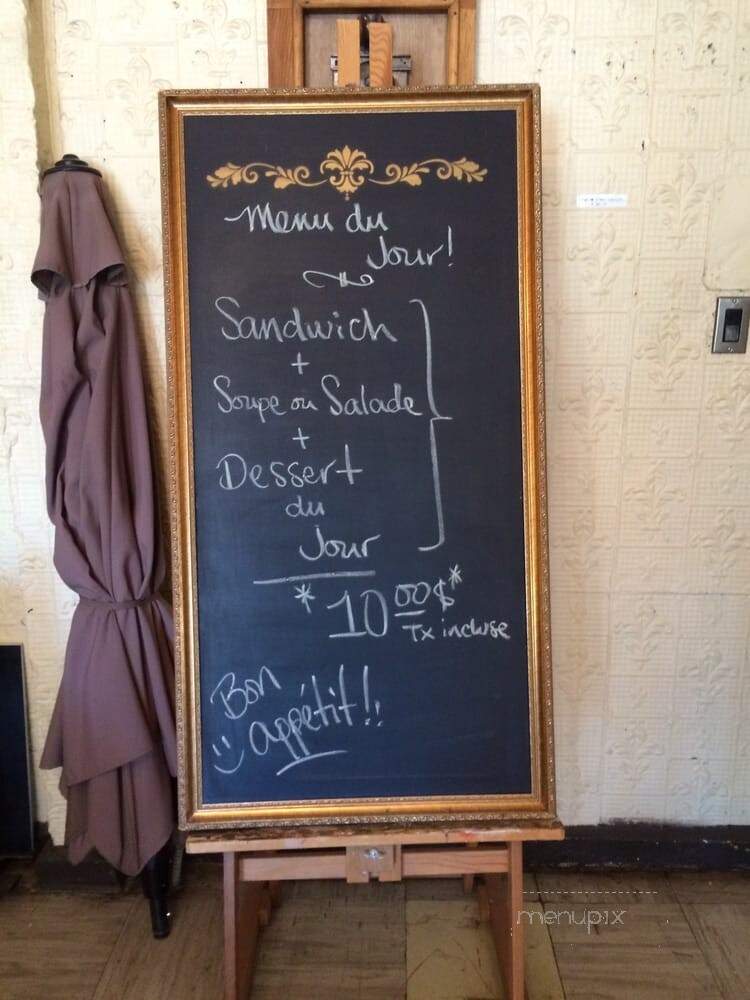 Menu du
Jour!
Sandwich
+
Soupe ou Salade
+
Dessert
du
Jour
* 10 00$*
Tx incluse
Bon
appétit!!
menupix